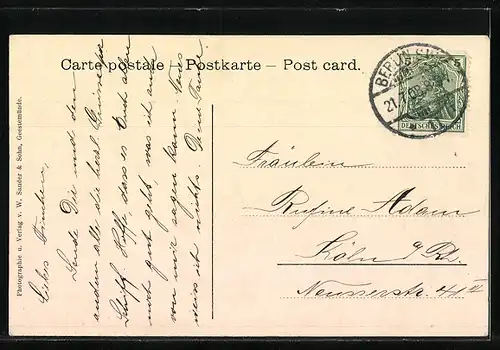 Carte postale – Postkarte – Post card.
BERLIN S.W.
21.7.
5
DEUTSCHES REICH
Photographie u. Verlag v. W. Sander & Sohn, Geestemünde.
Liebes
Sende Dir und den
andern alle die herzl. Grüsse
Hoffe, dass es Euch allen
noch gut geht, was ich auch
von mir sagen kann. Neues
weiss ich nichts. Deine Tante
Fräulein
Rufine Adam
Köln a/Rh.
Neusserstr. 41 III